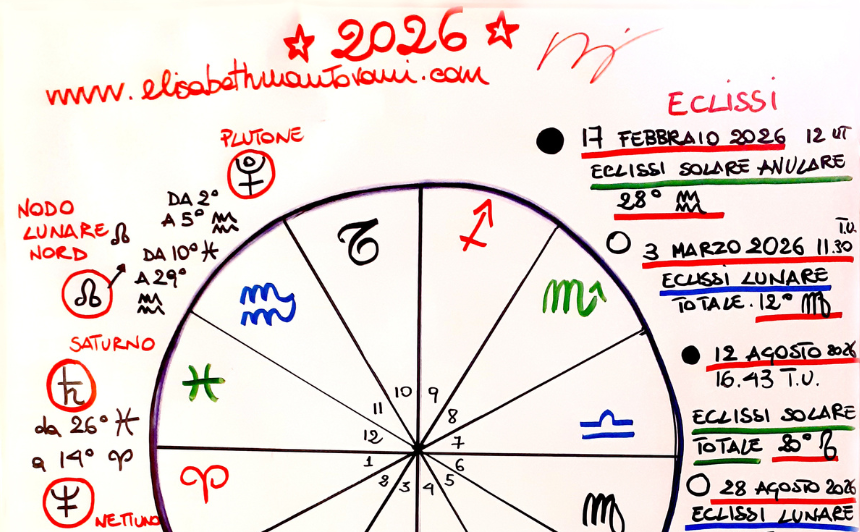 2026
www.elisabethmantovani.com
PLUTONE
DA 2°
A 5° ♒
NODO
LUNARE ☊
NORD
DA 10° ♓
A 29°
♒
SATURNO
da 26° ♓
a 14° ♈
NETTUNO
ECLISSI
17 FEBBRAIO 2026 12 UT
ECLISSI SOLARE ANULARE
28° ♒
T.U.
3 MARZO 2026 11.30
ECLISSI LUNARE
TOTALE. 12° ♍
12 AGOSTO 2026
16.43 T.U.
ECLISSI SOLARE
TOTALE 20° ♌
28 AGOSTO 2026
ECLISSI LUNARE
10 9
11 8
12 7
1 6
2 3 4 5